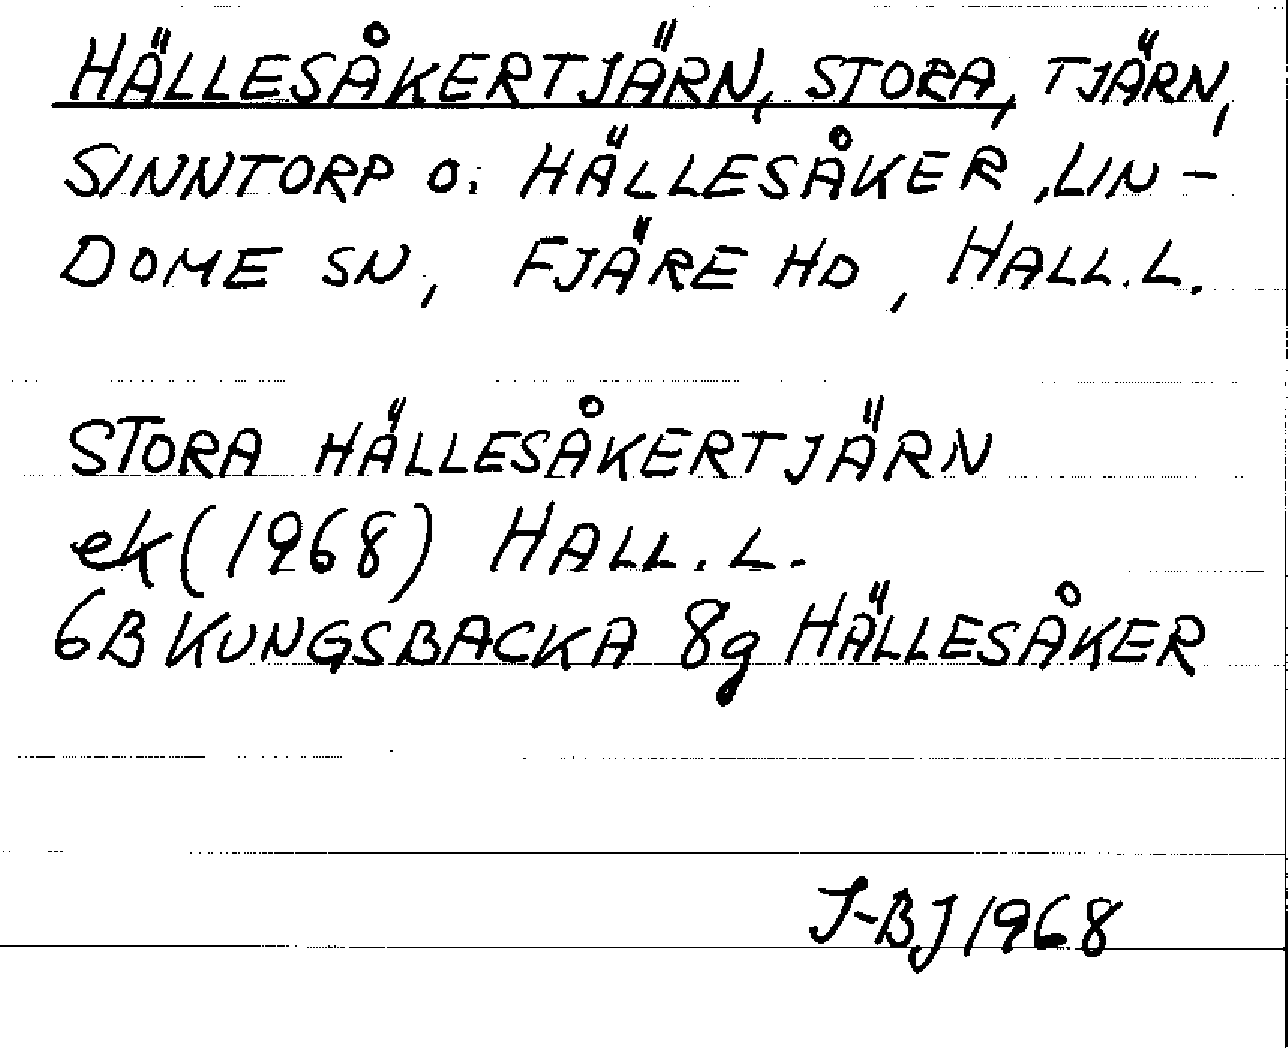 HÄLLESÅKERTJÄRN, STORA, TJÄRN,
SINNTORP O. HÄLLESÅKER, LIN-
DOME SN, FJÄRE HD, HALL.L.
STORA HÄLLESÅKERTJÄRN
ek (1968) HALL.L.
6B KUNGSBACKA 8g HÄLLESÅKER
J-BJ 1968